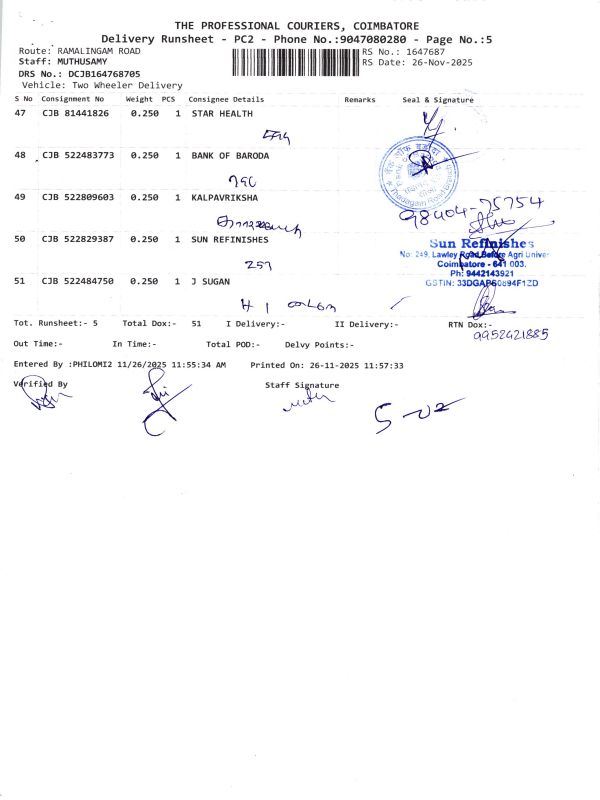 THE PROFESSIONAL COURIERS, COIMBATORE
Delivery Runsheet - PC2 - Phone No.:9047080280 - Page No.:5
Route: RAMALINGAM ROAD RS No.: 1647687
Staff: MUTHUSAMY RS Date: 26-Nov-2025
DRS No.: DCJB164768705
Vehicle: Two Wheeler Delivery
S No Consignment No Weight PCS Consignee Details Remarks Seal & Signature
47 CJB 81441826 0.250 1 STAR HEALTH
48 CJB 522483773 0.250 1 BANK OF BARODA
49 CJB 522809603 0.250 1 KALPAVRIKSHA
98404-75754
50 CJB 522829387 0.250 1 SUN REFINISHES
257
Sun Refinishes
No: 249, Lawley Road, Before Agri Univer
Coimbatore - 641 003.
Ph: 9442143921
51 CJB 522484750 0.250 1 J SUGAN
Tot. Runsheet:- 5 Total Dox:- 51 I Delivery:- II Delivery:- RTN Dox:-
9952421885
Out Time:- In Time:- Total POD:- Delvy Points:-
Entered By :PHILOMI2 11/26/2025 11:55:34 AM Printed On: 26-11-2025 11:57:33
Verified By Staff Signature